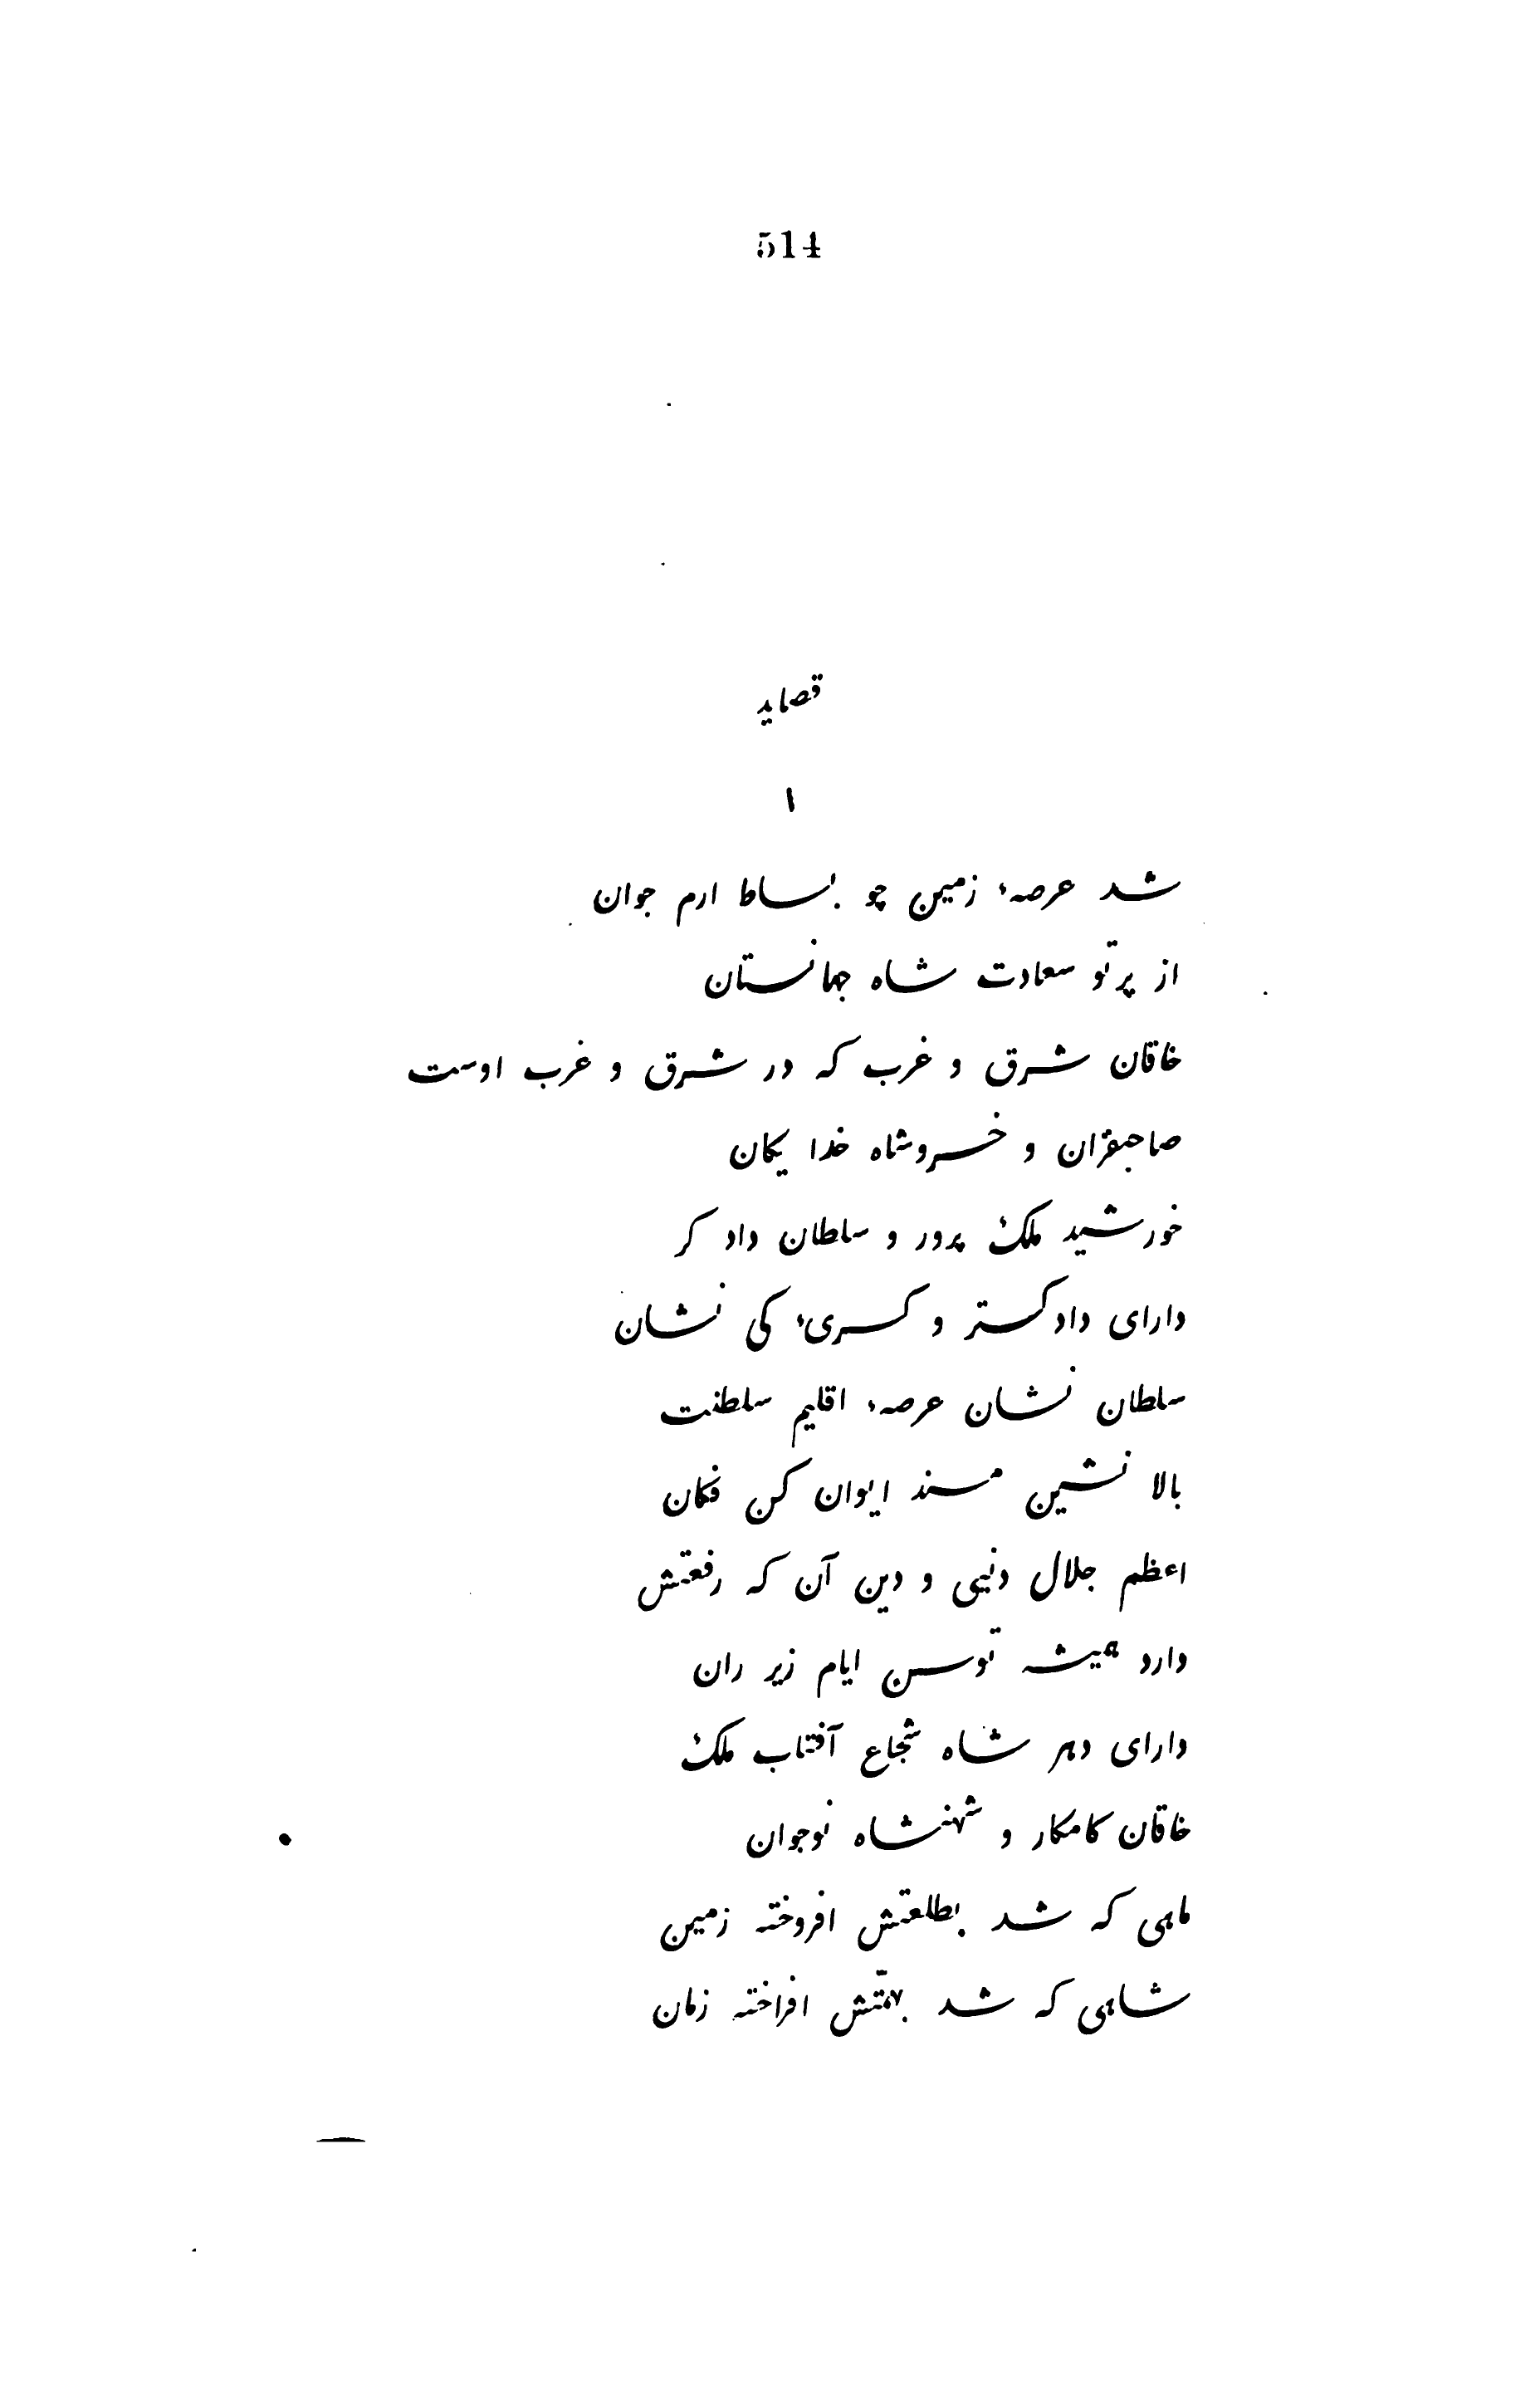 514
قصاید
۱
شد عرصهٔ زمین چو بساط ارم جوان
از پرتو سعادت شاه جهانستان
خاقان شرق و غرب که در شرق و غرب اوست
صاحبقران و خسروشاه خدا یکان
خورشید ملک پرور و سلطان داد کر
دارای داد کستر و کسریٔ کی نشان
سلطان نشان عرصهٔ اقلیم سلطنت
بالا نشین مسند ایوان کن فکان
اعظم جلال دنیی و دین آن که رفعتش
دارد همیشه توسن ایام زیر ران
دارای دهر شاه شجاع آفتاب ملک
خاقان کامکار و شهنشاه نوجوان
ماهی که شد بطلعتش افروخته زمین
شاهی که شد بهمّتش افراخته زمان